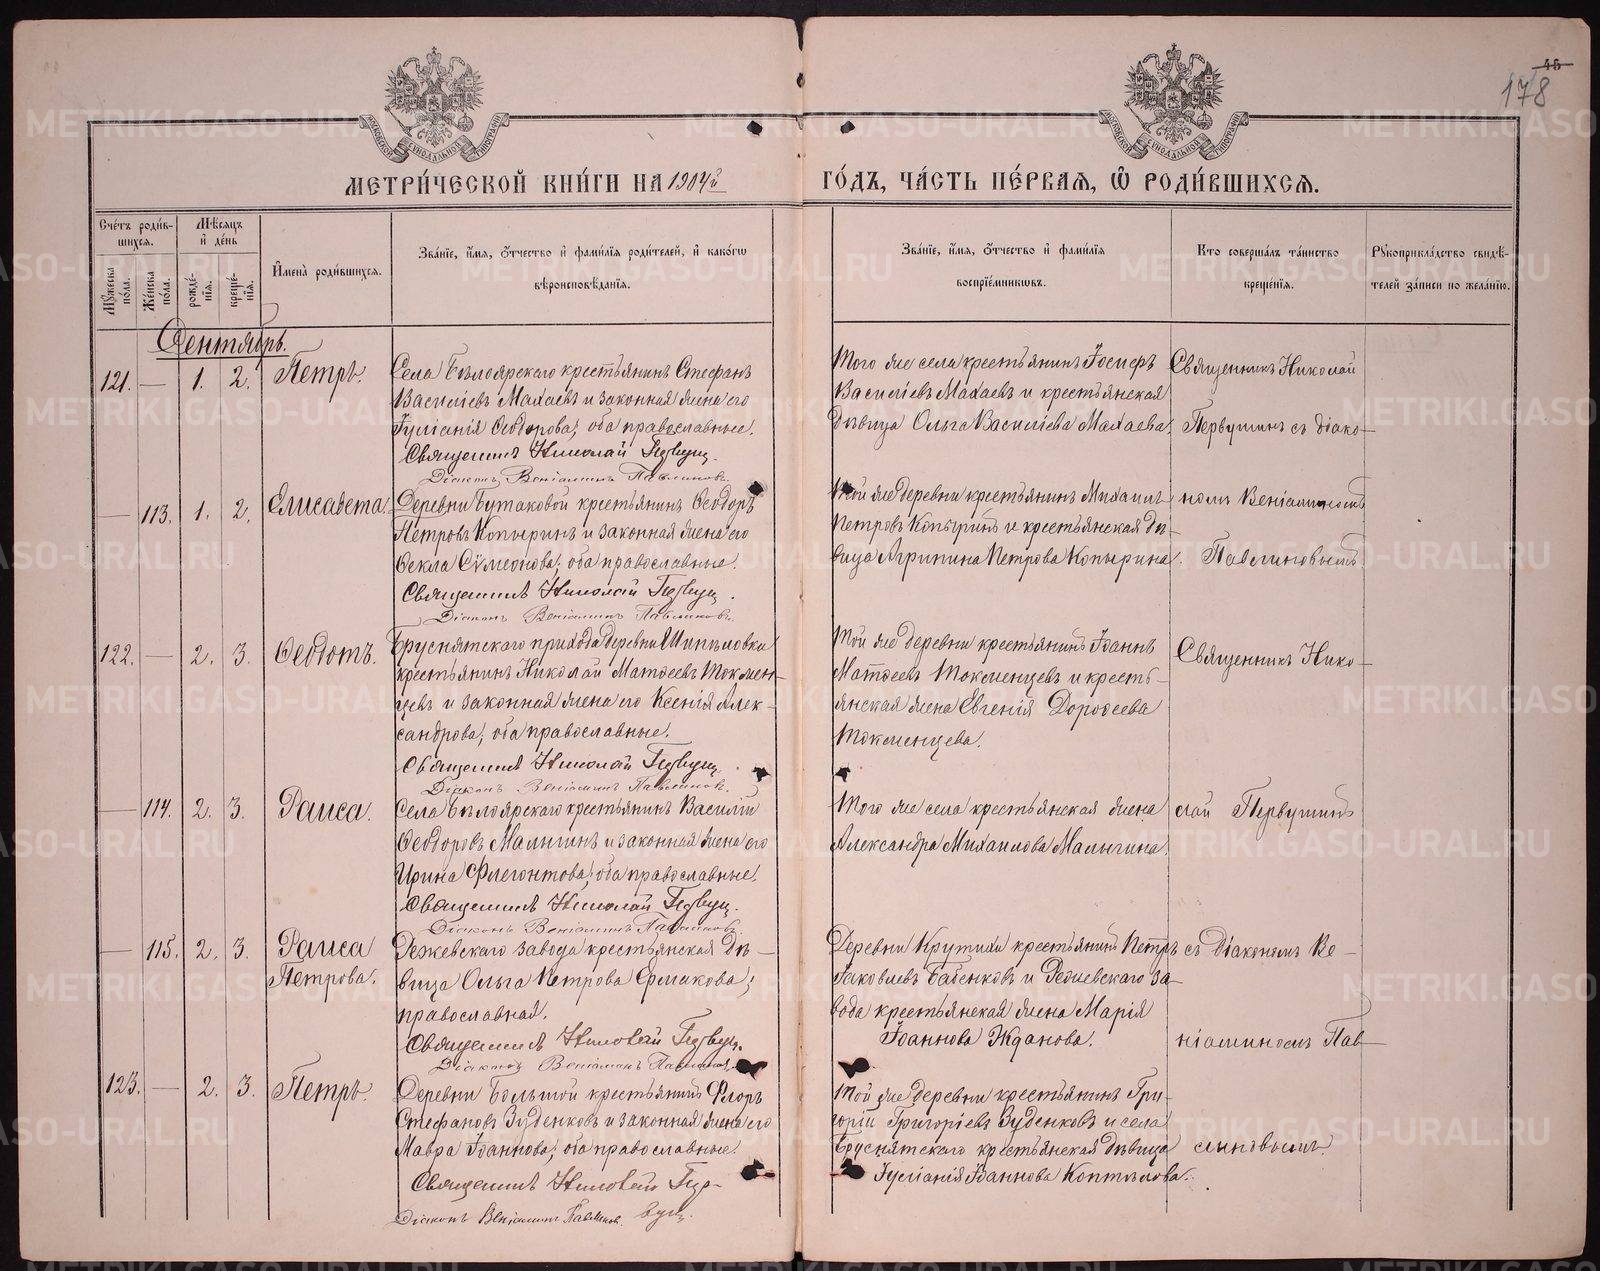 45
178
МЕТРИ́ЧЕСКОЙ КНИ́ГИ НА 1904й ГО́ДЪ, ЧА́СТЬ ПЕ́РВАЯ, Ѡ҆ РОДИ́ВШИХСЯ.
Сче́тъ роди́вшихся.
Мѣ́сяцъ и҆ де́нь
Мꙋ́жеска по́ла.
Же́нска по́ла.
рожде́нїя.
креще́нїя.
И҆мена̀ роди́вшихся.
Зва́нїе, и҆́мя, ѻ҆́тчество и҆ фами́лїя роди́телей, и҆ како́гѡ вѣроисповѣ́данїя.
Зва́нїе, и҆́мя, ѻ҆́тчество и҆ фами́лїя воспрїе́мникѡвъ.
Кто̀ соверша́лъ та́инство креще́нїя.
Рꙋкоприкла́дство свидѣ́телей за́писи по жела́нїю.
Сентябрь.
121. — 1. 2. Петръ.
Села Бѣлоярскаго крестьянинъ Стефанъ
Василіевъ Махаевъ и законная жена его
Іуліанія Ѳеодорова; оба православные.
Священникъ Николай
Діаконъ Веніаминъ Павлиновъ.
Того же села крестьянинъ Іосифъ
Василіевъ Махаевъ и крестьянская
дѣвица Ольга Василіева Махаева.
Священникъ Николай
Первушинъ съ діако-
— 113. 1. 2. Елисавета.
Деревни Бутаковой крестьянинъ Ѳеодоръ
Петровъ Копыринъ и законная жена его
Ѳекла Сѵмеонова; оба православные.
Священникъ Николай
Діаконъ Веніаминъ Павлиновъ.
Той же деревни крестьянинъ Михаилъ
Петровъ Копыринъ и крестьянская дѣ-
вица Агрипина Петрова Копырина.
номъ Веніаминомъ
Павлиновымъ.
122. — 2. 3. Ѳеодотъ.
Бруснятскаго прихода деревни
крестьянинъ Николай Матѳеевъ Токмен-
цевъ и законная жена его Ксенія Алек-
сандрова; оба православные.
Священникъ Николай
Діаконъ Веніаминъ Павлиновъ.
Той же деревни крестьянинъ Іоаннъ
Матѳеевъ Токменцевъ и кресть-
янская жена Евгенія Дороѳеева
Токменцева.
Священникъ Нико-
— 114. 2. 3. Раиса.
Села Бѣлоярскаго крестьянинъ Василій
Ѳеодоровъ Малыгинъ и законная жена его
Ирина Флегонтова; оба православные.
Священникъ Николай
Діаконъ Веніаминъ Павлиновъ.
Того же села крестьянская жена
Александра Михаилова Малыгина.
лай Первушинъ
— 115. 2. 3. Раиса
Петрова.
Режевскаго завода крестьянская дѣ-
вица Ольга Петрова Ермакова;
православная.
Священникъ Николай
Діаконъ Веніаминъ Павлиновъ
Деревни Крутихи крестьянинъ Петръ
Іаковлевъ Бабенковъ и Режевскаго за-
вода крестьянская жена Марія
Іоаннова Жданова.
съ діакономъ Ве-
ніаминомъ Пав-
123. — 2. 3. Петръ.
Деревни Большой крестьянинъ Флоръ
Стефановъ Зуденковъ и законная жена его
Мавра Іоаннова; оба православные.
Священникъ Николай
Діаконъ Веніаминъ Павлинов.
Той же деревни крестьянинъ Гри-
горій Григоріевъ Зуденковъ и села
Бруснятскаго крестьянская дѣвица
Іуліанія Іоаннова Коптѣлова.
линовымъ.
METRIKI.GASO-URAL.RU